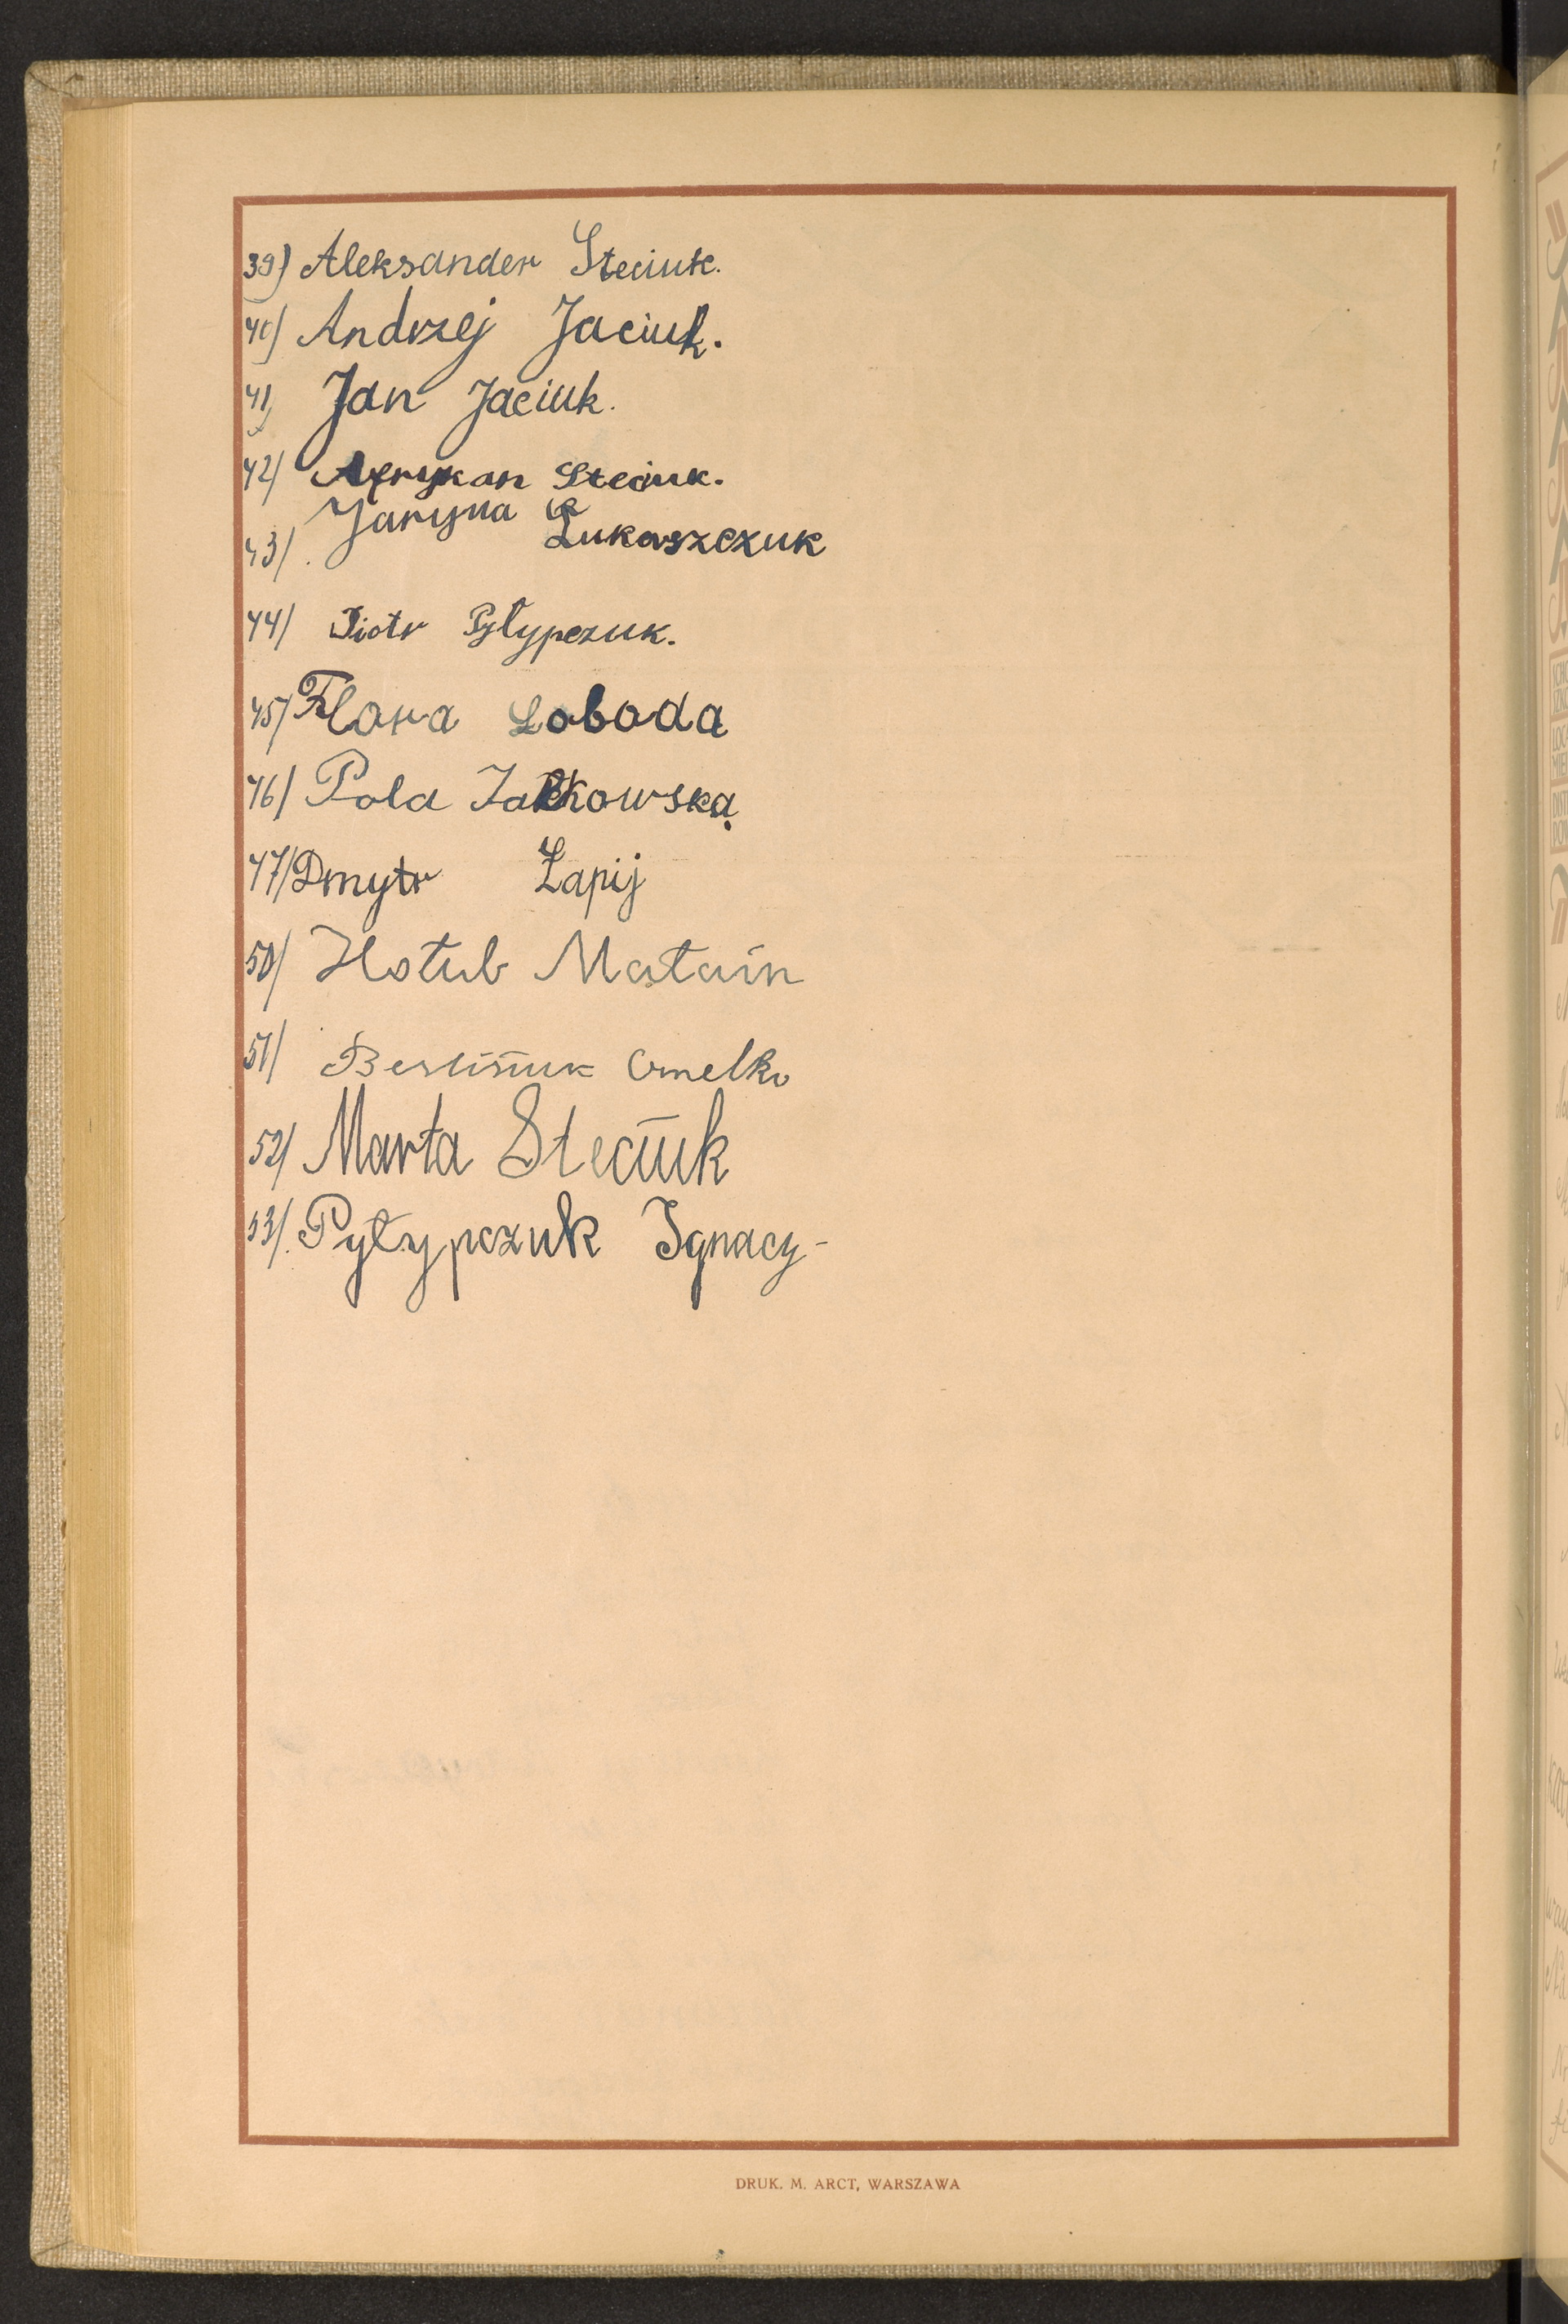 39) Aleksander Steciuk.
40) Andrzej Jaciuk.
41) Jan Jaciuk.
42/ Afrykan Steciuk.
43/. Jaryna Łukaszczuk
44/ Piotr Pyłypczuk.
45/ Flora Łoboda
46/ Pola Jałkowska
47/ Dmytr Łapij
50/ Hołub
51/ Omelko
52/ Marta Steciuk
53/. Pyłypczuk Ignacy-
DRUK. M. ARCT, WARSZAWA